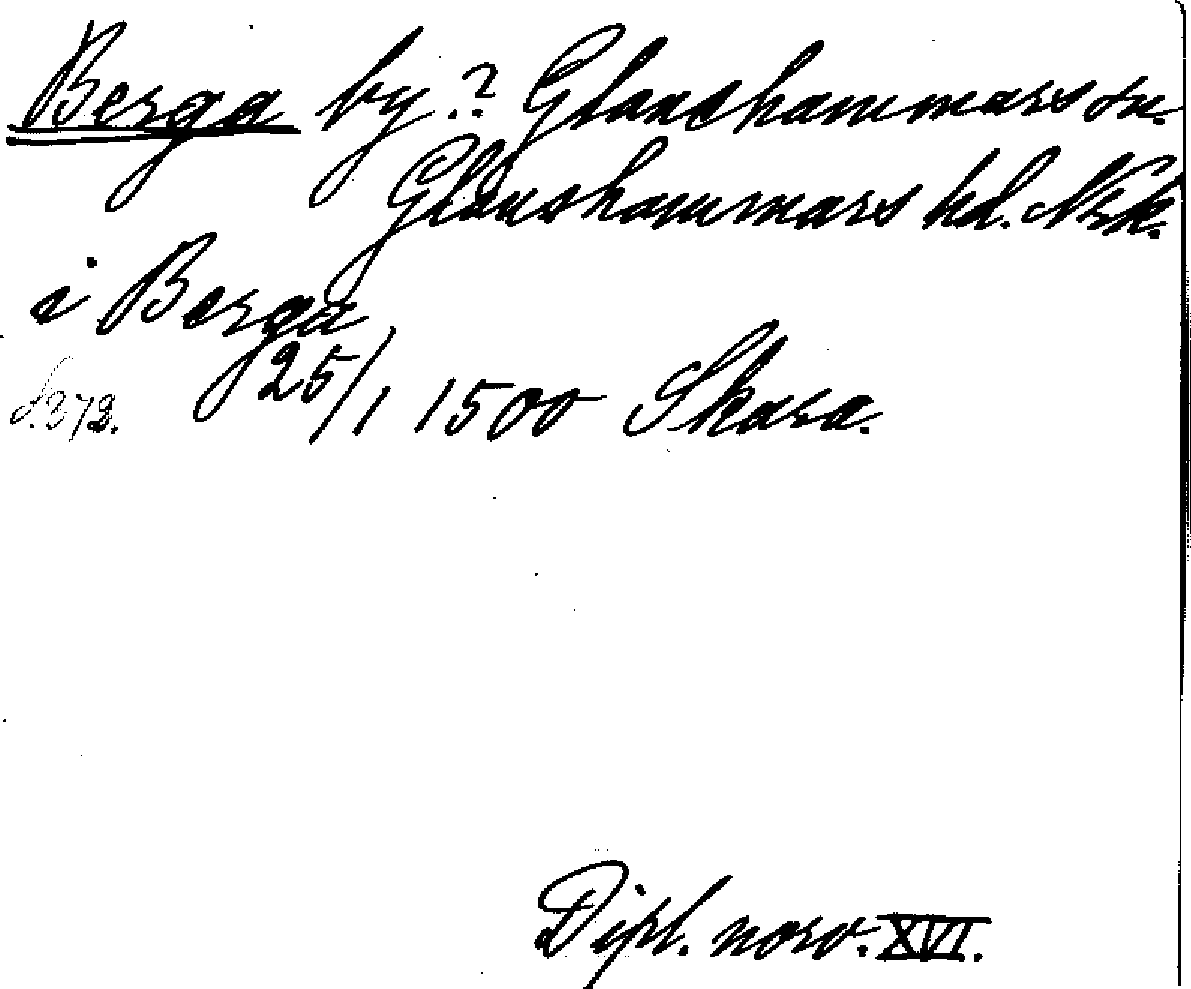 Berga by? Glanshammars sn.
Glanshammars hd. Nrk.
i Berga
s. 372. 25/1 1500 Skara.
Dipl. norv. XVI.